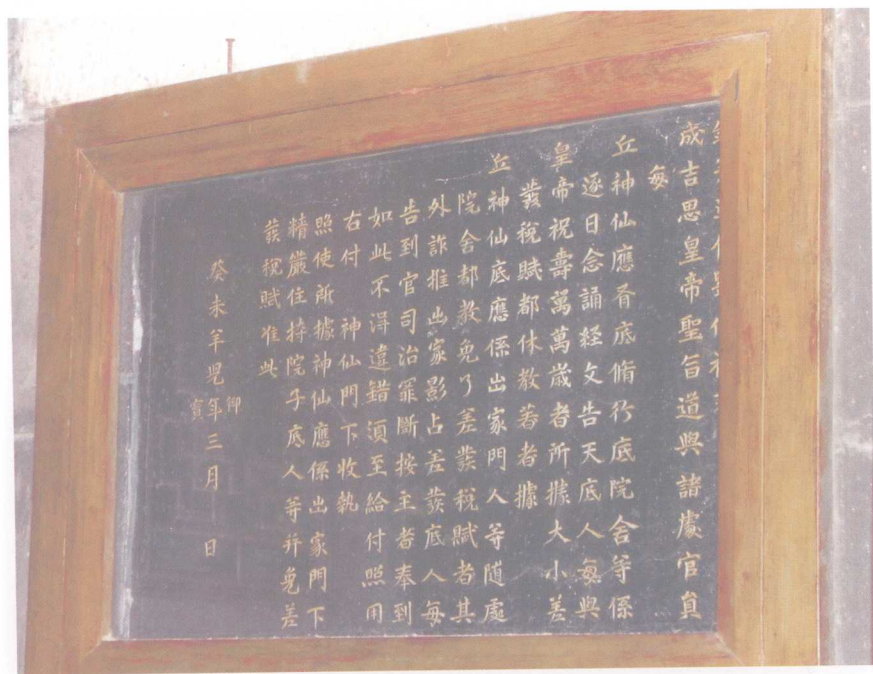 成吉思皇帝聖旨道與諸處官員
每
丘神仙應有底脩行底院舍等係
逐日念誦経文告天底人每與
皇帝祝壽萬萬歲者所據大小差
發稅賦都休教著者據
丘神仙底應係出家門人等隨處
院舍都教免了差發稅賦者其
外詐推出家影占差發底人每
告到官司治罪斷按主者奉到
如此不得違錯須至給付照用
右付 神仙門下收執
照使所據神仙應係出家門下
精嚴住持院子底人等并免差
發稅賦准此
癸未羊兒年三月 日
御寶